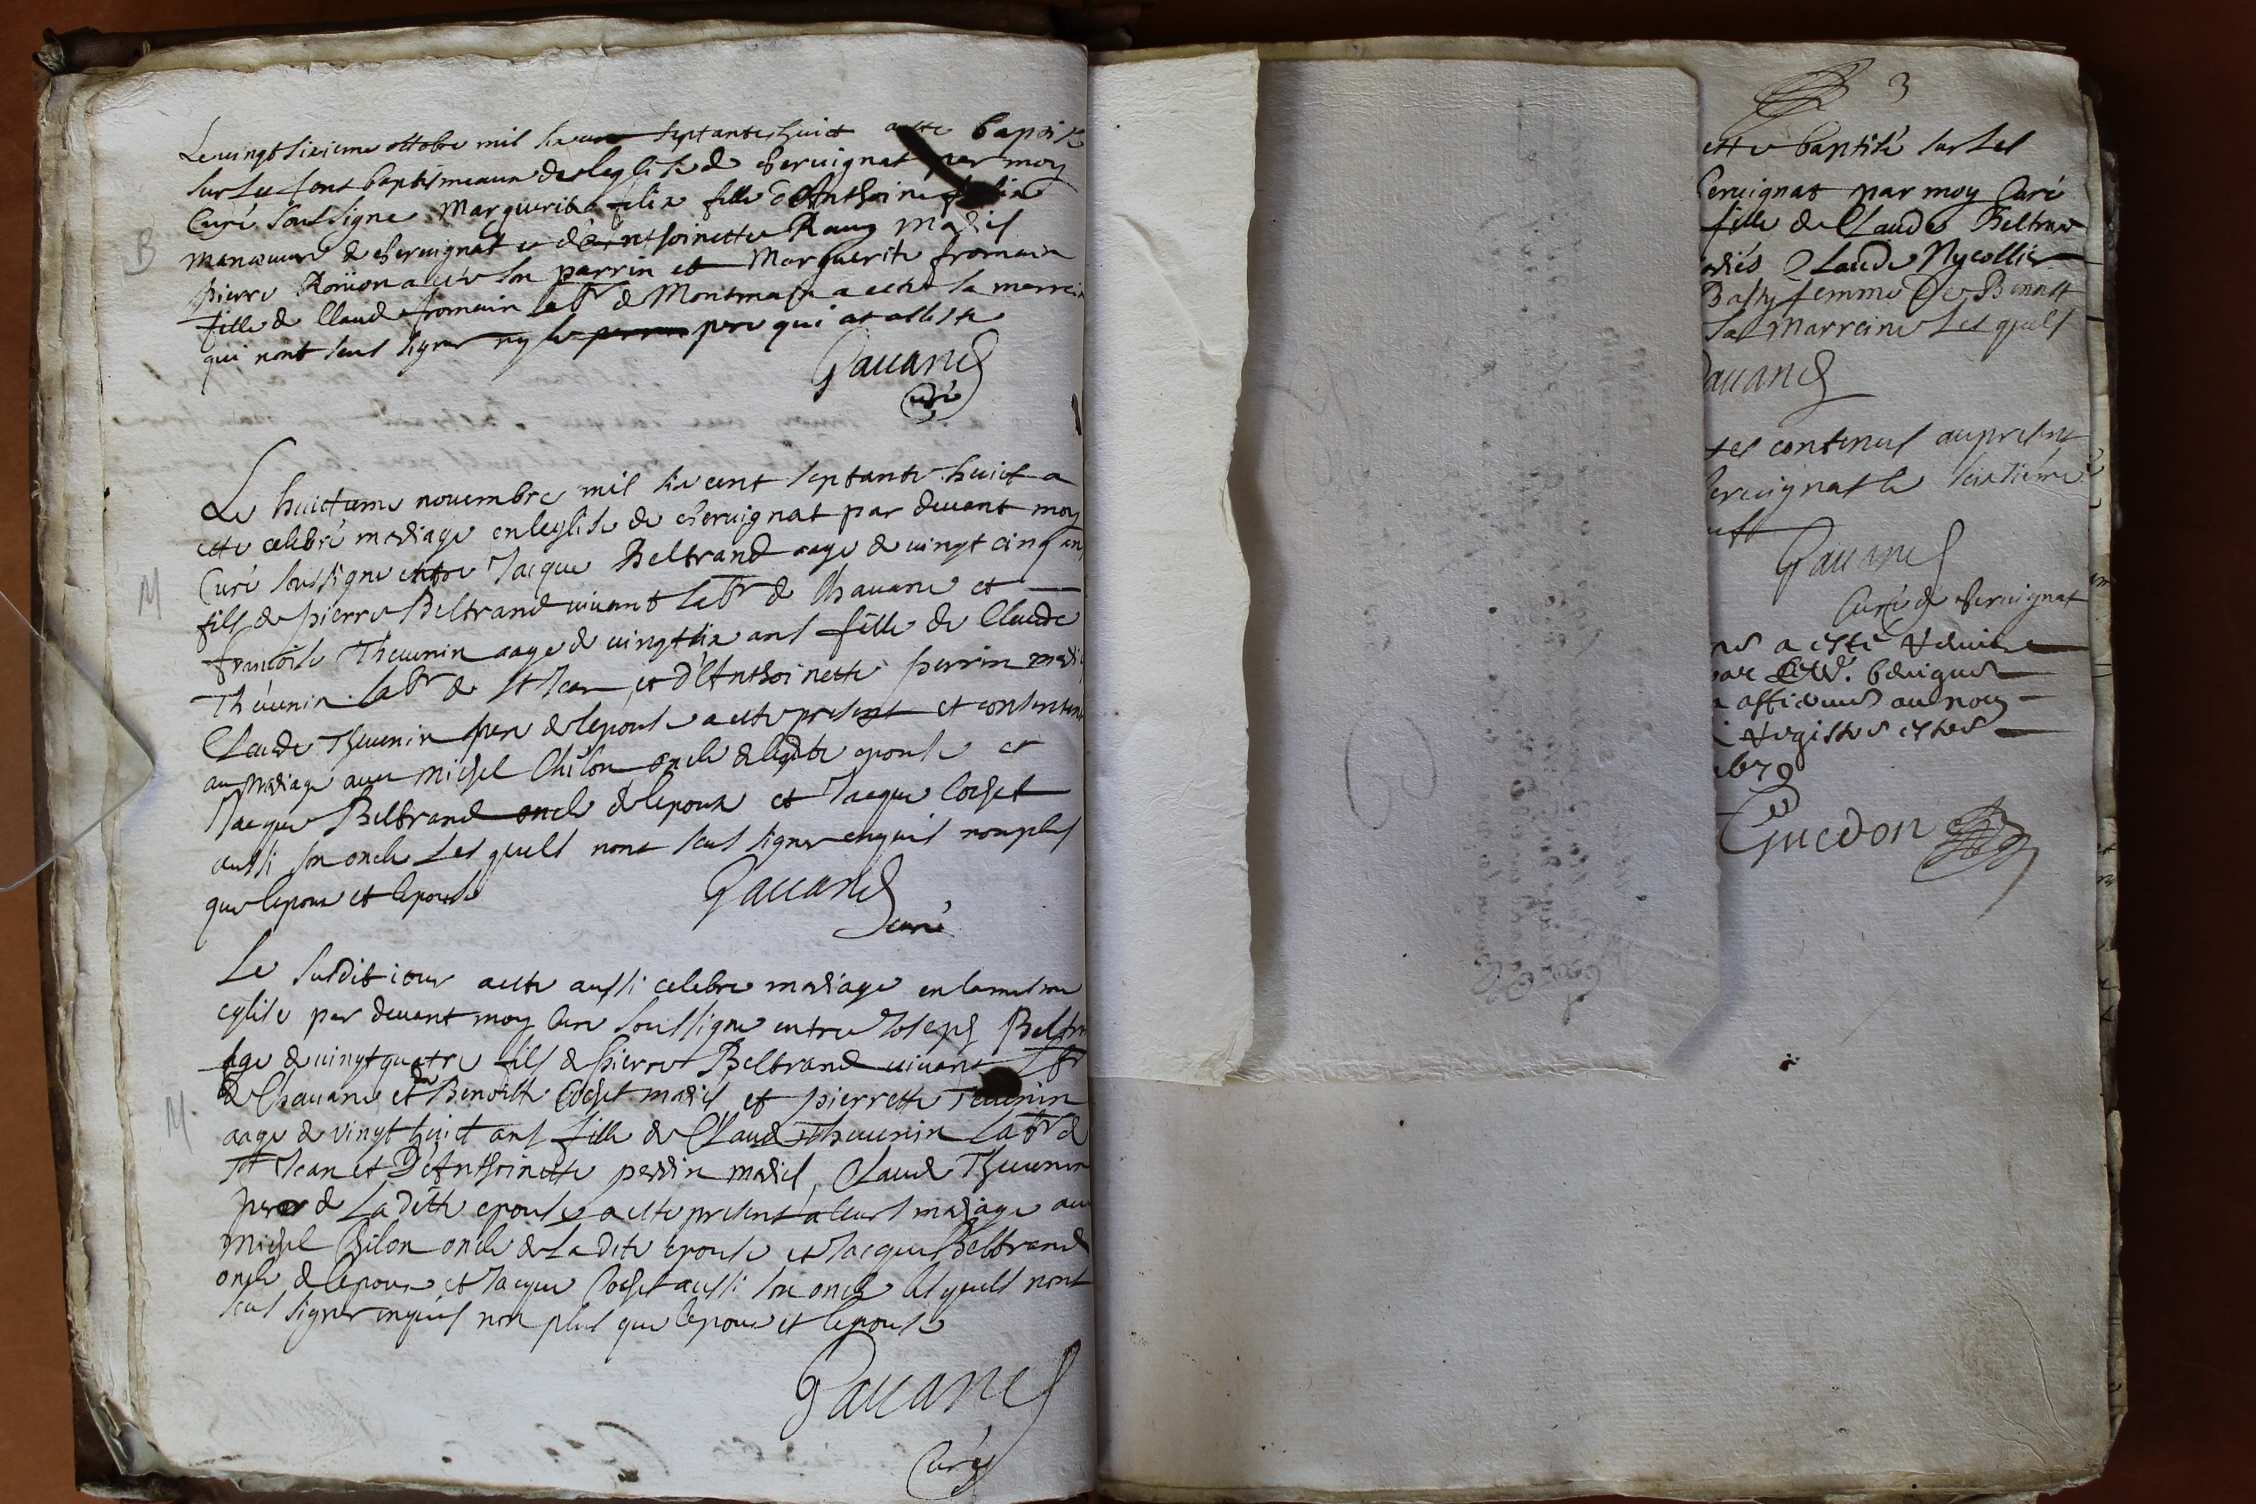 Le vingt sixieme octobre mil six cent septante huict a este baptise
sur les fons baptismeaux de leglise de chervignat par moy
Curé soussigne Marguerite felix fille d'Anthoine felix
manœuvre de chervignat et d'Anthoinette Raux Mariés
pierre a este son parrin et Marguerite fromain
fille de Claude fromain labr de Montmain a este sa marreine
qui nont seus signer ny le pere qui at assiste
Gavand
Curé
B
Le huictieme novembre mil six cent septante huict a
este celebré mariage en leglise de chervignat par devant moy
Curé soussigne entre Jacque Beltrand aage de vingt cinq ans
fils de pierre Beltrand vivant labr de Chavane et
francoise Thevenin aage de vingt six ans fille de Claude
Thevenin labr de St Jean et d'Anthoinette perrin mariés
Claude Thevenin pere de lepouse a este present et consentant
au mariage avec Michel Chilon oncle de ladite epouse et
Jacque Beltrand oncle de lepoux et Jacque Cochet
aussi son oncle Lesquels nont seus signer enquis nonplus
que lepoux et lepouse
Gavand
curé
M
Le susdit jour a este aussi celebre mariage en la mesme
eglise par devant moy Cure soussigne entre Joseph Beltrand
age de vingt quatre fils de pierre Beltrand vivant labr
de Chavane et de Benoitte Cochet mariés et pierrette Tevenin
aage de vingt huict ans fille de Claude Thevenin labr de
St Jean et D'Anthoinette perrin mariés, Claude Thevenin
pere de La ditte epouse a este present a leurs mariage avec
Michel Chilon oncle de La dite epouse et Jacque Beltrand
oncle de lepoux et Jacque Cochet aussi son oncle lesquels nont
seus signer enquis non plus que lepoux et lepouse
M
Gavand
Curé
3
ette baptisé sur Les
chervignat par moy Curé
fille de Claude Beltrand
mariés Claude Nycollier
femme de Benoit
sa Marreine Les quels
Gavand
tes contenus au present
chervignat le
Gavand
Curé de chervignat
a esté
par
registre
1679
Guedon